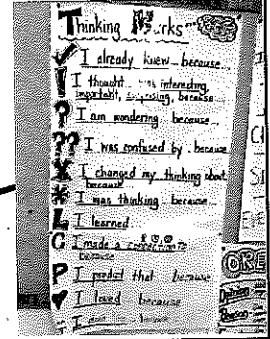 Thinking Marks
✓ I already knew... because...
! I thought... was interesting,
important, surprising, because...
? I am wondering... because...
?? I was confused by... because
I changed my thinking about
because
* I was thinking because...
L I learned...
C I made a connection to
because
P I predict that because
♥ I loved because
Opinion
Reason